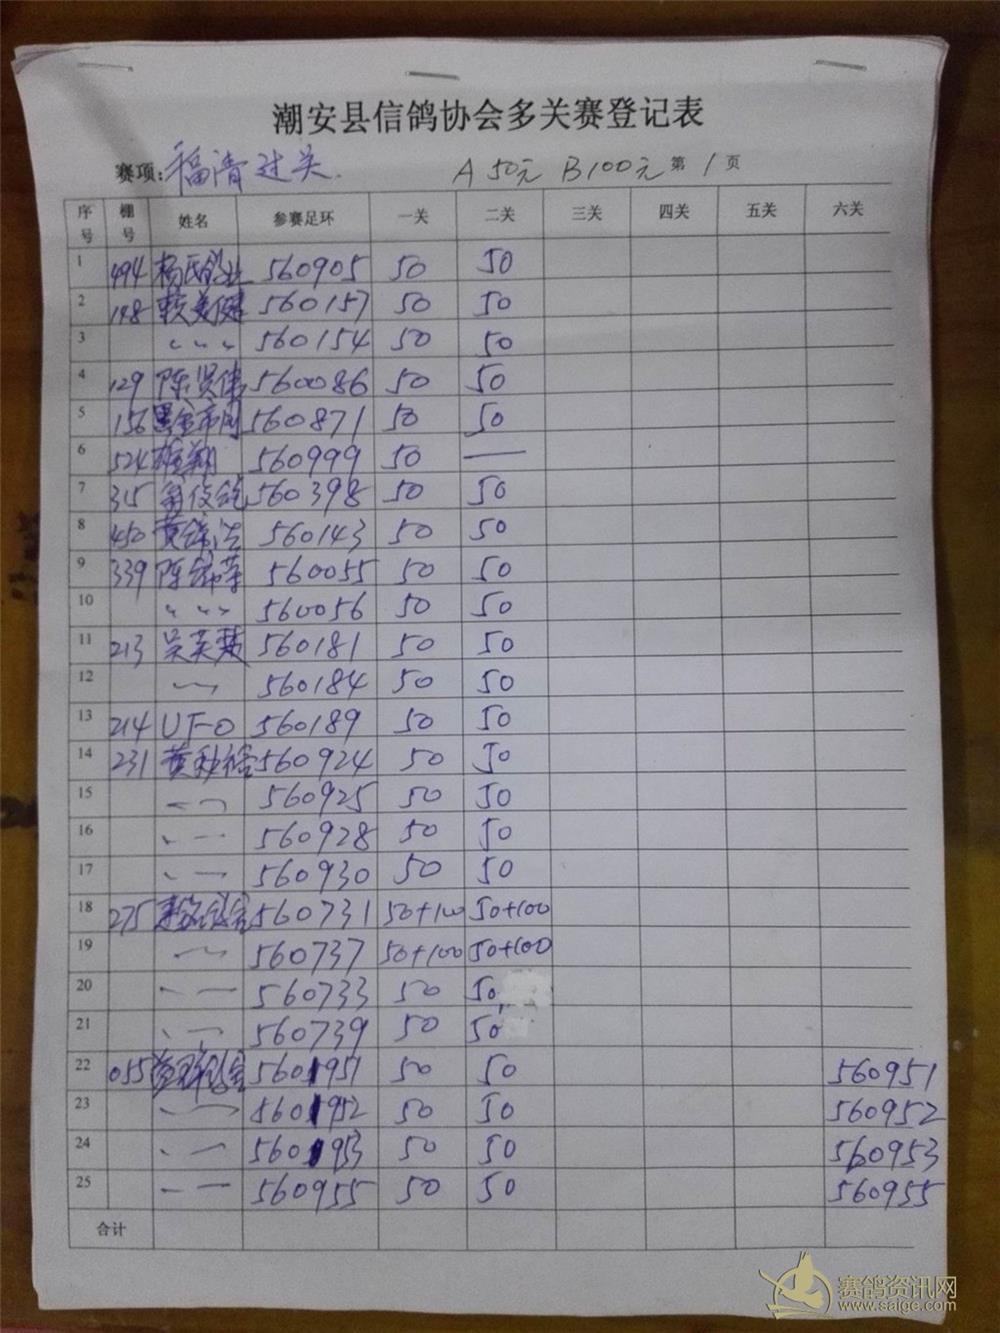 潮安县信鸽协会多关赛登记表
赛项: 福清过关. A 50元 B 100元 第 1 页
序号 棚号 姓名 参赛足环 一关 二关 三关 四关 五关 六关
1 494 杨氏鸽业 560905 50 50
2 148 赖美健 560157 50 50
3 〃 〃 〃 560154 50 50
4 129 陈贤伟 560086 50 50
5 156 560871 50 50
6 524 雄翔 560999 50 —
7 315 560398 50 50
8 450 560143 50 50
9 339 陈锦荣 560055 50 50
10 〃 〃 〃 560056 50 50
11 213 560181 50 50
12 560184 50 50
13 214 UFO 560189 50 50
14 231 560924 50 50
15 560925 50 50
16 560928 50 50
17 560930 50 50
18 275 560731 50+100 50+100
19 560737 50+100 50+100
20 560733 50 50
21 560739 50 50
22 055 560951 50 50 560951
23 560952 50 50 560952
24 560953 50 50 560953
25 560955 50 50 560955
合计
赛鸽资讯网
www.saige.com